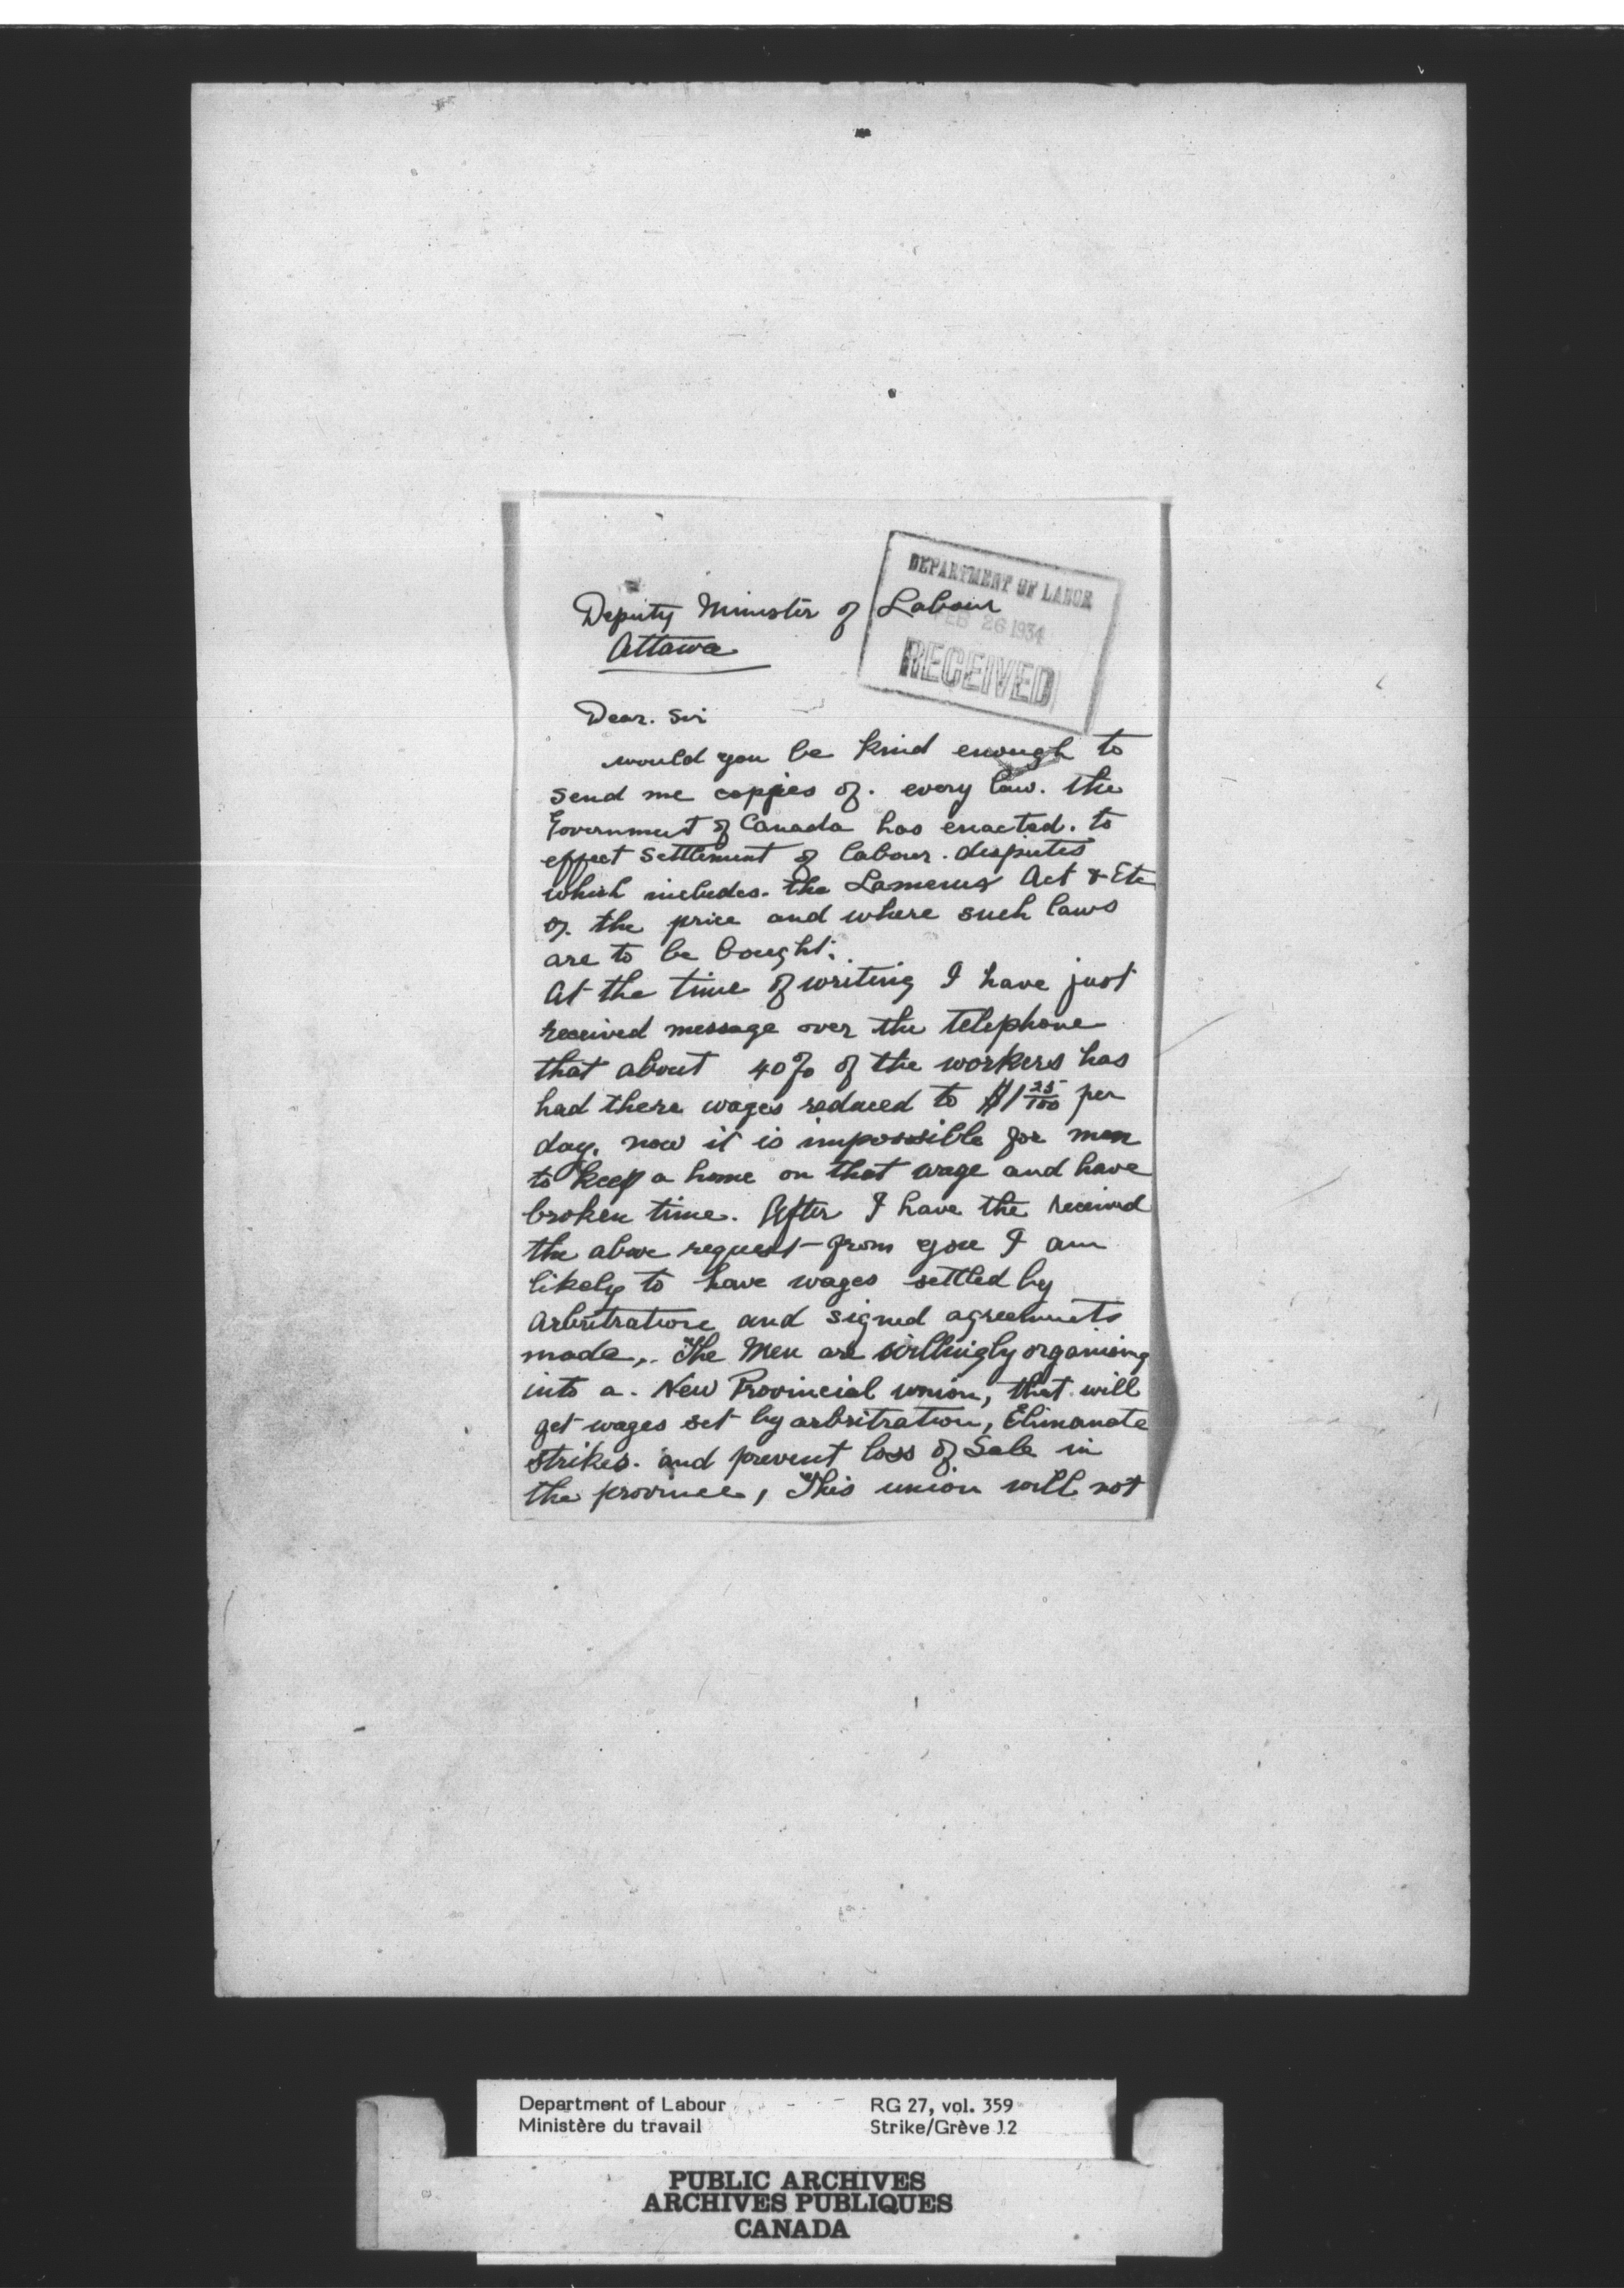 DEPARTMENT OF LABOR
FEB 26 1934
RECEIVED
Deputy Minister of Labour
Ottawa
Dear. Sir
would you be kind enough to
send me coppies of. every law. the
Government of Canada has enacted. to
effect Settlement of labour. disputes
which includes. the Act & Etc
or. the price and where such laws
are to be bought.
At the time of writing I have just
received message over the telephone
that about 40% of the workers has
had there wages reduced to $1 25/100 per
day. now it is impossible for men
to keep a home on that wage and have
broken time. After I have the received
the above request from you I am
likely to have wages settled by
Arbitration and signed agreements
made,. The Men are willingly organising
into a. New Provincial union, that will
get wages set by arbritration, Elimanate
strikes. and prevent loss of Sale in
the province, This union will not
Department of Labour
Ministère du travail
RG 27, vol. 359
Strike/Grève 12
PUBLIC ARCHIVES
ARCHIVES PUBLIQUES
CANADA